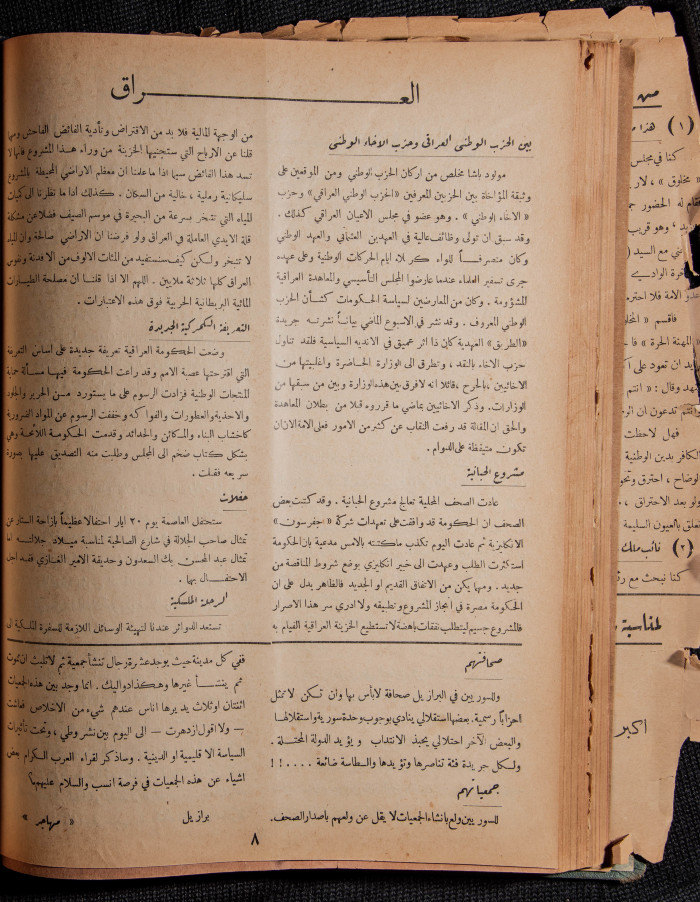 العـــــــراق
بين الحزب الوطني العراقي وحزب الاخاء الوطني
مولود باشا مخلص من اركان الحزب الوطني ومن الموقعين على
وثيقة المؤاخاة بين الحزبين المعرفين «الحزب الوطني العراقي» وحزب
«الاخاء الوطني». وهو عضو في مجلس الاعيان العراقي كذلك.
وقد سبق ان تولى وظائف عالية في العهدين العثماني والعهد الوطني
وكان متصرفاً للواء كربلاء ايام الحركات الوطنية وعلى عهده
جرى تسفير العلماء عندما عارضوا المجلس التأسيسي والمعاهدة العراقية
المشؤومة. وكان من المعارضين لسياسة الحكومات كشأن الحزب
الوطني المعروف. وقد نشر في الاسبوع الماضي بياناً نشرته جريدة
«الطريق» العهدية كان ذا اثر عميق في الاندية السياسية فلقد تناول
حزب الاخاء بالنقد، وتطرق الى الوزارة الحاضرة واغلبيتها من
الاخائيين بالجرح «قائلا انه لا فرق بين هذه الوزارة وبين من سبقها من
الوزارات. وذكر الاخائيين بماضي ما قرروه قبلا من بطلان المعاهدة
والحق ان المقالة قد رفعت النقاب عن كثير من الامور فعلى الامة الآن ان
تكون متيقظة على الدوام.
مشروع الحبانية
عادت الصحف المحلية تعالج مشروع الحبانية. وقد كتبت بعض
الصحف ان الحكومة قد وافقت على تعهدات شركة «جفرسون»
الانكليزية ثم عادت اليوم تكذب ما كتبته بالامس مدعية بان الحكومة
استكثرت الطلب وعهدت الى خبير انكليزي بوضع شروط المناقصة من
جديد. ومهما يكن من الاتفاق القديم او الجديد فالظاهر يدل على ان
الحكومة مصرة في انجاز المشروع وتطبيقه ولا ادري سر هذا الاصرار
فالمشروع جسيم ليتطلب نفقات باهضة لا تستطيع الخزينة العراقية القيام به
من الوجهة المالية فلا بد من الاقتراض وتأدية الفائض الفاحش ومهما
قلنا عن الارباح التي ستجنيها الخزينة من وراء هذا المشروع فانها لا
تسد هذا الفائض سيما اذا ما علمنا ان معظم الاراضي المحيطة بالمشروع
سليكانية رملية، خالية من السكان. كذلك اذا ما نظرنا الى كيان
المياه التي تتبخر بسرعة من البحيرة في موسم الصيف فضلا عن مشكلة
قلة الايدي العاملة في العراق ولو فرضنا ان الاراضي صالحة وان المياه
لا تتبخر ولكن كيف سنستفيد من المئات الالوف من الافدنة ونفوس
العراق كلها ثلاثة ملايين. اللهم الا اذا قلنا ان مصلحة الطيارات
المائية البريطانية الحربية فوق هذه الاعتبارات.
التعريفة الكمركية الجديدة
وضعت الحكومة العراقية تعريفة جديدة على اساس التعرفة
التي اقترحتها عصبة الامم وقد راعت الحكومة فيها مسألة حماية
المنتجات الوطنية فزادت الرسوم على ما يستورد من الحرير والجلود
والاحذية والعطورات والفواكه وخففت الرسوم عن المواد الضرورية
كاخشاب البناء والمكائن والحدائد وقدمت الحكومة اللائحة وهي
بشكل كتاب ضخم الى المجلس وطلبت منه التصديق عليها بصورة
سريعه فقبلت.
حفلات
ستحتفل العاصمة يوم ٣٠ ايار احتفالا عظيماً بازاحة الستار عن
تمثال صاحب الجلالة في شارع الصالحية لمناسبة ميلاد جلالته اما
تمثال عبد المحسن بك السعدون وحديقة الامير الغازي فقد اجل
الاحتفال بها.
الرحلة الملكية
تستعد الدوائر عندنا لتهيئة الوسائل اللازمة للسفرة الملكية الى
صحافتهم
وللسوريين في البرازيل صحافة لا بأس بها وان تكن لا تمثل
احزاباً رسمية. بعضها استقلالي ينادي بوجوب وحدة سورية واستقلالها
والبعض الآخر احتلالي يحبذ الانتداب ويؤيد الدولة المحتلة.
ولكل جريدة فئة تناصرها وتؤيدها والسطاسة ضائعة ....!!
جمعياتهم
للسوريين ولع بانشاء الجمعيات لا يقل عن ولعهم باصدار الصحف.
ففي كل مدينة حيث يوجد عشرة رجال تنشأ جمعية ثم لا تلبث ان تموت
ثم ينشأ غيرها وهكذا دواليك. انما وجد بين هذه الجمعيات
اثنتان او ثلاث يديرها اناس عندهم شيء من الاخلاص فعاشت
— ولا اقول ازدهرت — الى اليوم بين نشر وطي، وتحت تأثيرات
السياسة الاقليمية او الدينية. وساذكر لقراء العرب الكرام بعض
اشياء عن هذه الجمعيات في فرصة انسب والسلام عليهم؟
برازيل «مهاجر»
٨
من
(١) هذا
كنا في مجلس
«مخلوق»، لار
فقام له الحضور
وهو قريب
ني مع السيد
عدو الامة فلا احترم
فاقسم
وقال: «انتم
وانتم تدعون ان
فهل لاحظت
الكافر بدين الوطنية
الوضاح، احترق
ولو بعد الاحتراق،
تعلق بالعيون السليمة
(٢) نائب مالك
كنا نبحث مع
لمناسبة
اكبر